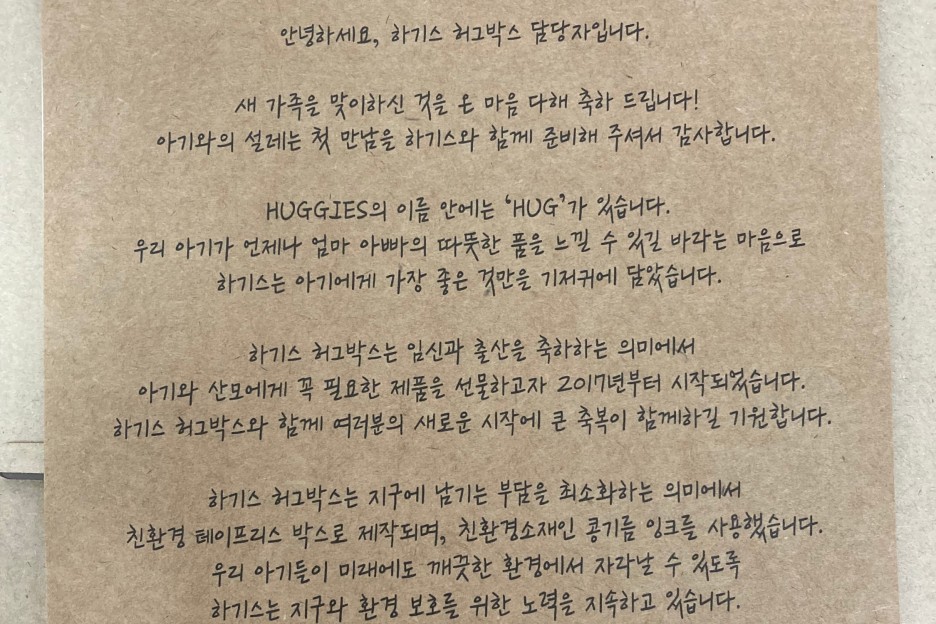 안녕하세요, 하기스 허그박스 담당자입니다.
새 가족을 맞이하신 것을 온 마음 다해 축하 드립니다!
아기와의 설레는 첫 만남을 하기스와 함께 준비해 주셔서 감사합니다.
HUGGIES의 이름 안에는 ‘HUG’가 있습니다.
우리 아기가 언제나 엄마 아빠의 따뜻한 품을 느낄 수 있길 바라는 마음으로
하기스는 아기에게 가장 좋은 것만을 기저귀에 담았습니다.
하기스 허그박스는 임신과 출산을 축하하는 의미에서
아기와 산모에게 꼭 필요한 제품을 선물하고자 2017년부터 시작되었습니다.
하기스 허그박스와 함께 여러분의 새로운 시작에 큰 축복이 함께하길 기원합니다.
하기스 허그박스는 지구에 남기는 부담을 최소화하는 의미에서
친환경 테이프리스 박스로 제작되며, 친환경소재인 콩기름 잉크를 사용했습니다.
우리 아기들이 미래에도 깨끗한 환경에서 자라날 수 있도록
하기스는 지구와 환경 보호를 위한 노력을 지속하고 있습니다.